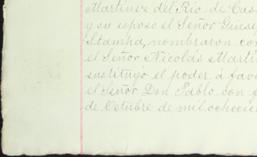 Martinez del Rio de Cas
y su esposo el Señor Giuse
Stampa, nombraron con
el Señor Nicolás Martín
sustituyo el poder á favo
el Señor Don Pablo con
de Octubre de mil ochocie